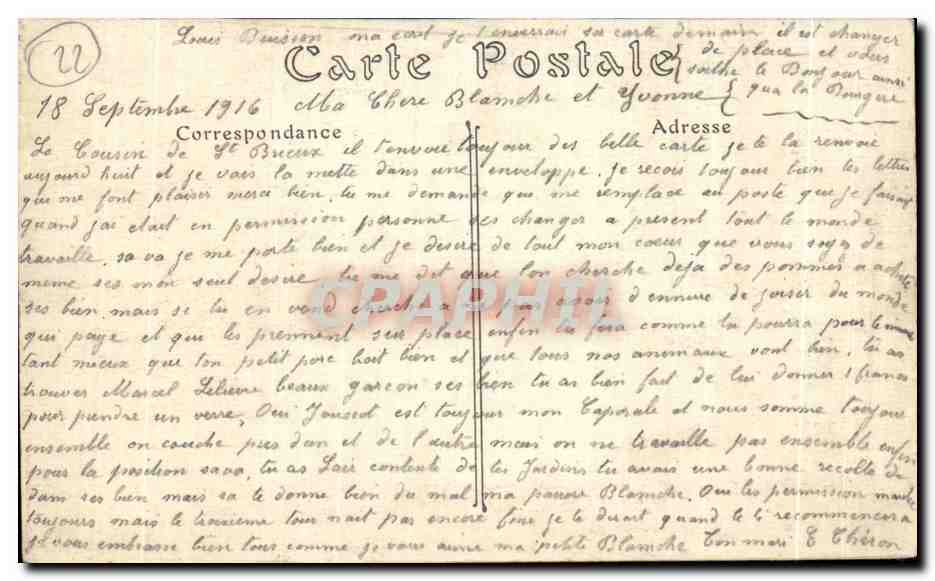 22
Louis Buisson ma ecrit je t'enverrais sa carte demain il est changer
de place et vous
Carte Postale
souhte le Bonjour ainsi
18 Septembre 1916 Ma Chere Blanche et Yvonne
qua la
Correspondance
Adresse
Le Cousin de St Brieux il t'envoie toujour des belle carte je te la renvoie
aujourd huit et je vais la mette dans une enveloppe. Je recois toujour bien les lettres
qui me font plaisir merci bien. tu me demande qui me remplace au poste que je faisait
quand jai etait en permission personne ses changer a present tout le monde
travaille, sa va je me porte bien et je desire de tout mon coeur que vous soyez de
meme ses mon seul desire tu me dit que lon cherche deja des pommes a acheté
ses bien, mais si tu en vend cherche a ne pas avoir d'ennuie de the du monde
qui paye et qui les prennent sur place enfin tu fera comme tu pourra pour le mieux
tant mieux que ton petit porc boit bien et que tous nos animaux vont bien, tu as
trouver Marcel Lelievre beaux garcon ses bien tu as bien fait de lui donner 1 franc
pour prendre un verre, Oui est toujour mon Caporale et nous somme toujour
ensemble on couche pres d'un et de l'autre mais on ne travaille pas ensemble enfin
pour la position sava, tu as Lair contente de tes Jardins tu avais une bonne recolte de
dans ses bien mais sa te donne bien du mal ma pauvre Blanche. Oui les permission marche
toujours mais le troisieme tour nait pas encore fine je te dirait quand le 4 recommencera
Je vous embrasse bien tous comme je vous aime ma petite Blanche Ton mari E Théron
CPAPHIL